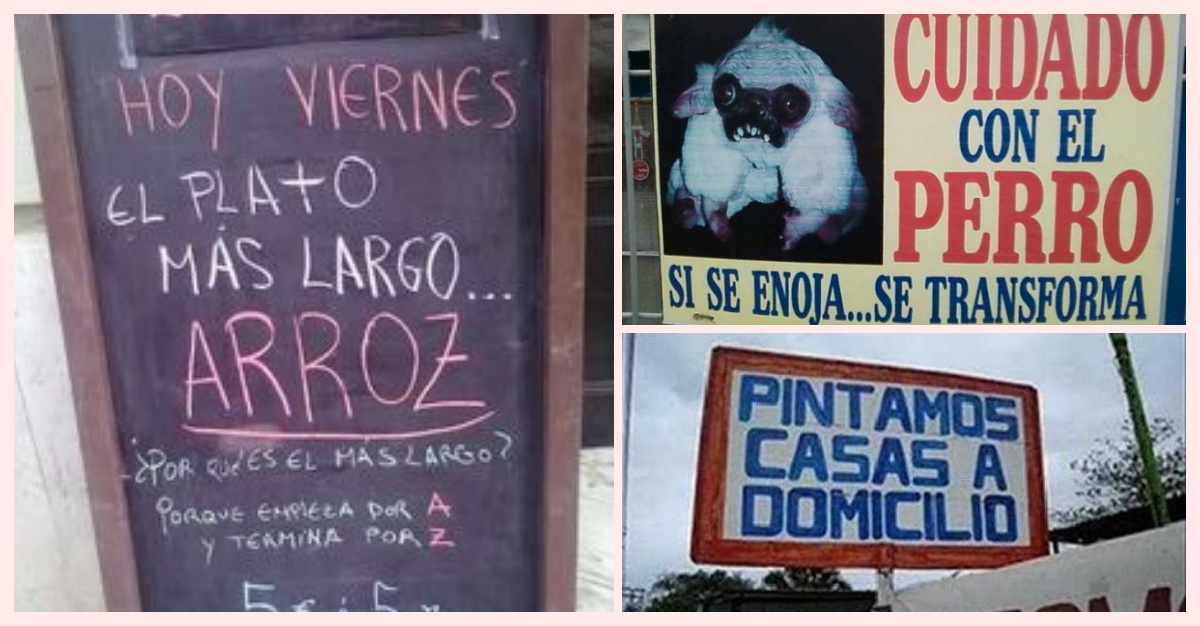 HOY VIERNES
EL PLATO
MÁS LARGO...
ARROZ
¿POR QUÉ ES EL MÁS LARGO?
PORQUE EMPIEZA POR A
Y TERMINA POR Z
CUIDADO
CON EL
PERRO
SI SE ENOJA...SE TRANSFORMA
PINTAMOS
CASAS A
DOMICILIO